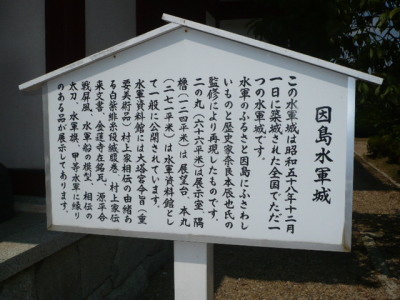 因島水軍城
この水軍城は昭和五十八年十二月
一日に築城された全国でただ一
つの水軍城です。
水軍のふるさと因島にふさわし
いものと歴史家奈良本辰也氏の
監修により再現したものです。
二の丸(六十六平米)は展示室、隅
櫓(一二四平米)は展望台、本丸
(一七二平米)は水軍資料館とし
て一般に公開されています。
水軍資料館には大塔宮令旨(重
要美術品)村上家相伝の由緒あ
る白紫緋糸段縅腹巻、村上家伝
来文書、金蓮寺在銘瓦、源平合
戦屏風、水軍船の模型、相伝の
太刀、水軍旗、甲冑等水軍に縁り
のある品が展示してあります。